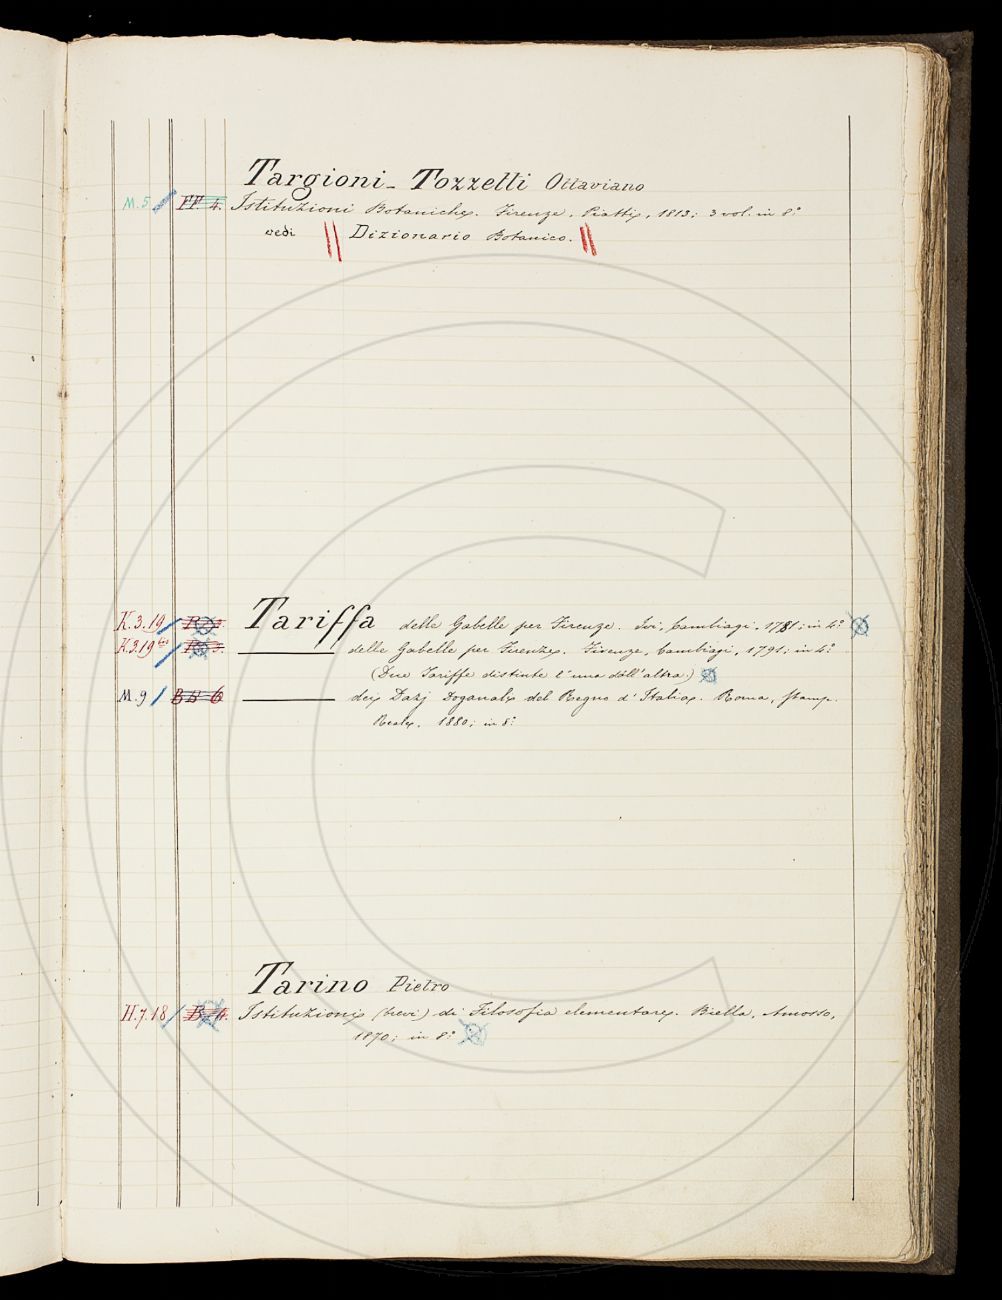 Targioni-Tozzetti Ottaviano
M. 5 FF 4. Istituzioni Botaniche. Firenze, Piatti, 1813; 3 vol. in 8°
vedi || Dizionario Botanico. ||
K. 3. 19 Tariffa delle Gabelle per Firenze. Ivi, Cambiagi, 1781; in 4°
K. 3. 19 bis delle Gabelle per Firenze. Firenze, Cambiagi, 1791; in 4°
(Due Tariffe distinte l'una dall'altra.)
M. 9 BB 6 dei Dazj Doganali del Regno d'Italia. Roma, Stamp.
Reale. 1880; in 8°
Tarino Pietro
H. 7. 18 B. 4. Istituzioni (brevi) di Filosofia elementare. Biella, Amosso,
1870; in 8°